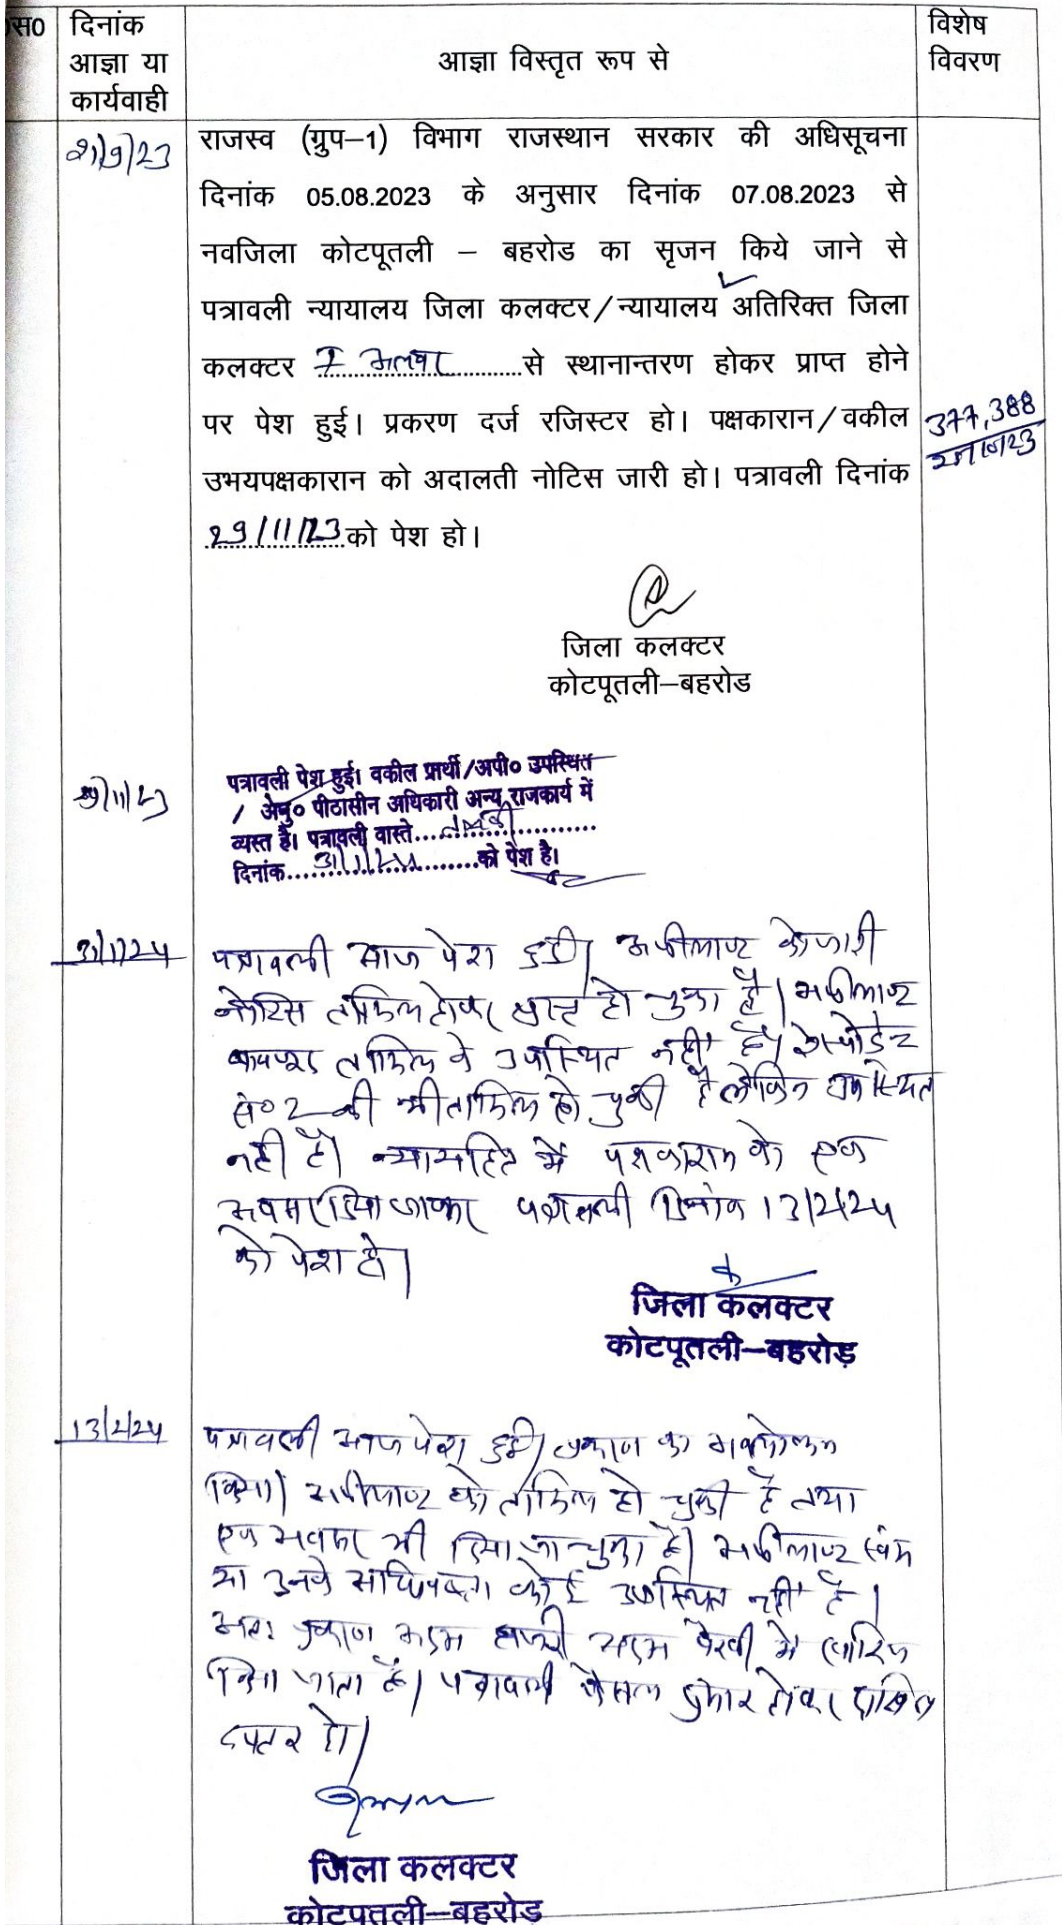 स0
दिनांक
आज्ञा या
कार्यवाही
आज्ञा विस्तृत रूप से
विशेष
विवरण
21/9/23
राजस्व (ग्रुप–1) विभाग राजस्थान सरकार की अधिसूचना
दिनांक 05.08.2023 के अनुसार दिनांक 07.08.2023 से
नवजिला कोटपूतली – बहरोड का सृजन किये जाने से
पत्रावली न्यायालय जिला कलक्टर/न्यायालय अतिरिक्त जिला
कलक्टर I अलवर से स्थानान्तरण होकर प्राप्त होने
पर पेश हुई। प्रकरण दर्ज रजिस्टर हो। पक्षकारान/वकील
377,388
उभयपक्षकारान को अदालती नोटिस जारी हो। पत्रावली दिनांक
29/11/23 को पेश हो।
जिला कलक्टर
कोटपूतली–बहरोड
29/11/23
पत्रावली पेश हुई। वकील प्रार्थी/अपी० उपस्थित
/ अनु० पीठासीन अधिकारी अन्य राजकार्य में
व्यस्त है। पत्रावली वास्ते
दिनांक 31/1/24 को पेश है।
31/1/24
पत्रावली आज पेश हुई। अपीलाण्ट को जारी
नोटिस तामिल होकर प्राप्त हो चुका है। अपीलाण्ट
बावजूद तामिल के उपस्थित नहीं है। रेस्पोडेन्ट
सं० 2 की भी तामिल हो चुकी है लेकिन उपस्थित
नहीं है। न्यायहित में पक्षकारान को एक
अवसर दिया जाकर पत्रावली दिनांक 13/2/24
को पेश हो।
जिला कलक्टर
कोटपूतली–बहरोड़
13/2/24
पत्रावली आज पेश हुई। प्रकरण का अवलोकन
किया। अपीलाण्ट को तामिल हो चुकी है तथा
एक अवसर भी दिया जा चुका है। अपीलाण्ट स्वंय
या उनके अधिवक्ता कोई उपस्थित नहीं है।
अतः प्रकरण अदम हाजरी अदम पैरवी में खारिज
किया जाता है। पत्रावली फैसल शुमार होकर दाखिल
दफ्तर हो।
जिला कलक्टर
कोटपूतली–बहरोड़